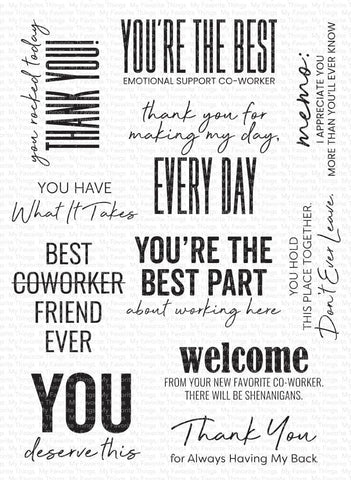 you rocked today
THANK YOU!
YOU'RE THE BEST
EMOTIONAL SUPPORT CO-WORKER
memo:
I APPRECIATE YOU
MORE THAN YOU'LL EVER KNOW
thank you for
making my day,
EVERY DAY
YOU HAVE
What It Takes
YOU HOLD
THIS PLACE TOGETHER.
Don't Ever Leave.
BEST
COWORKER
FRIEND
EVER
YOU'RE THE
BEST PART
about working here
welcome
FROM YOUR NEW FAVORITE CO-WORKER.
THERE WILL BE SHENANIGANS.
YOU
deserve this
Thank You
for Always Having My Back